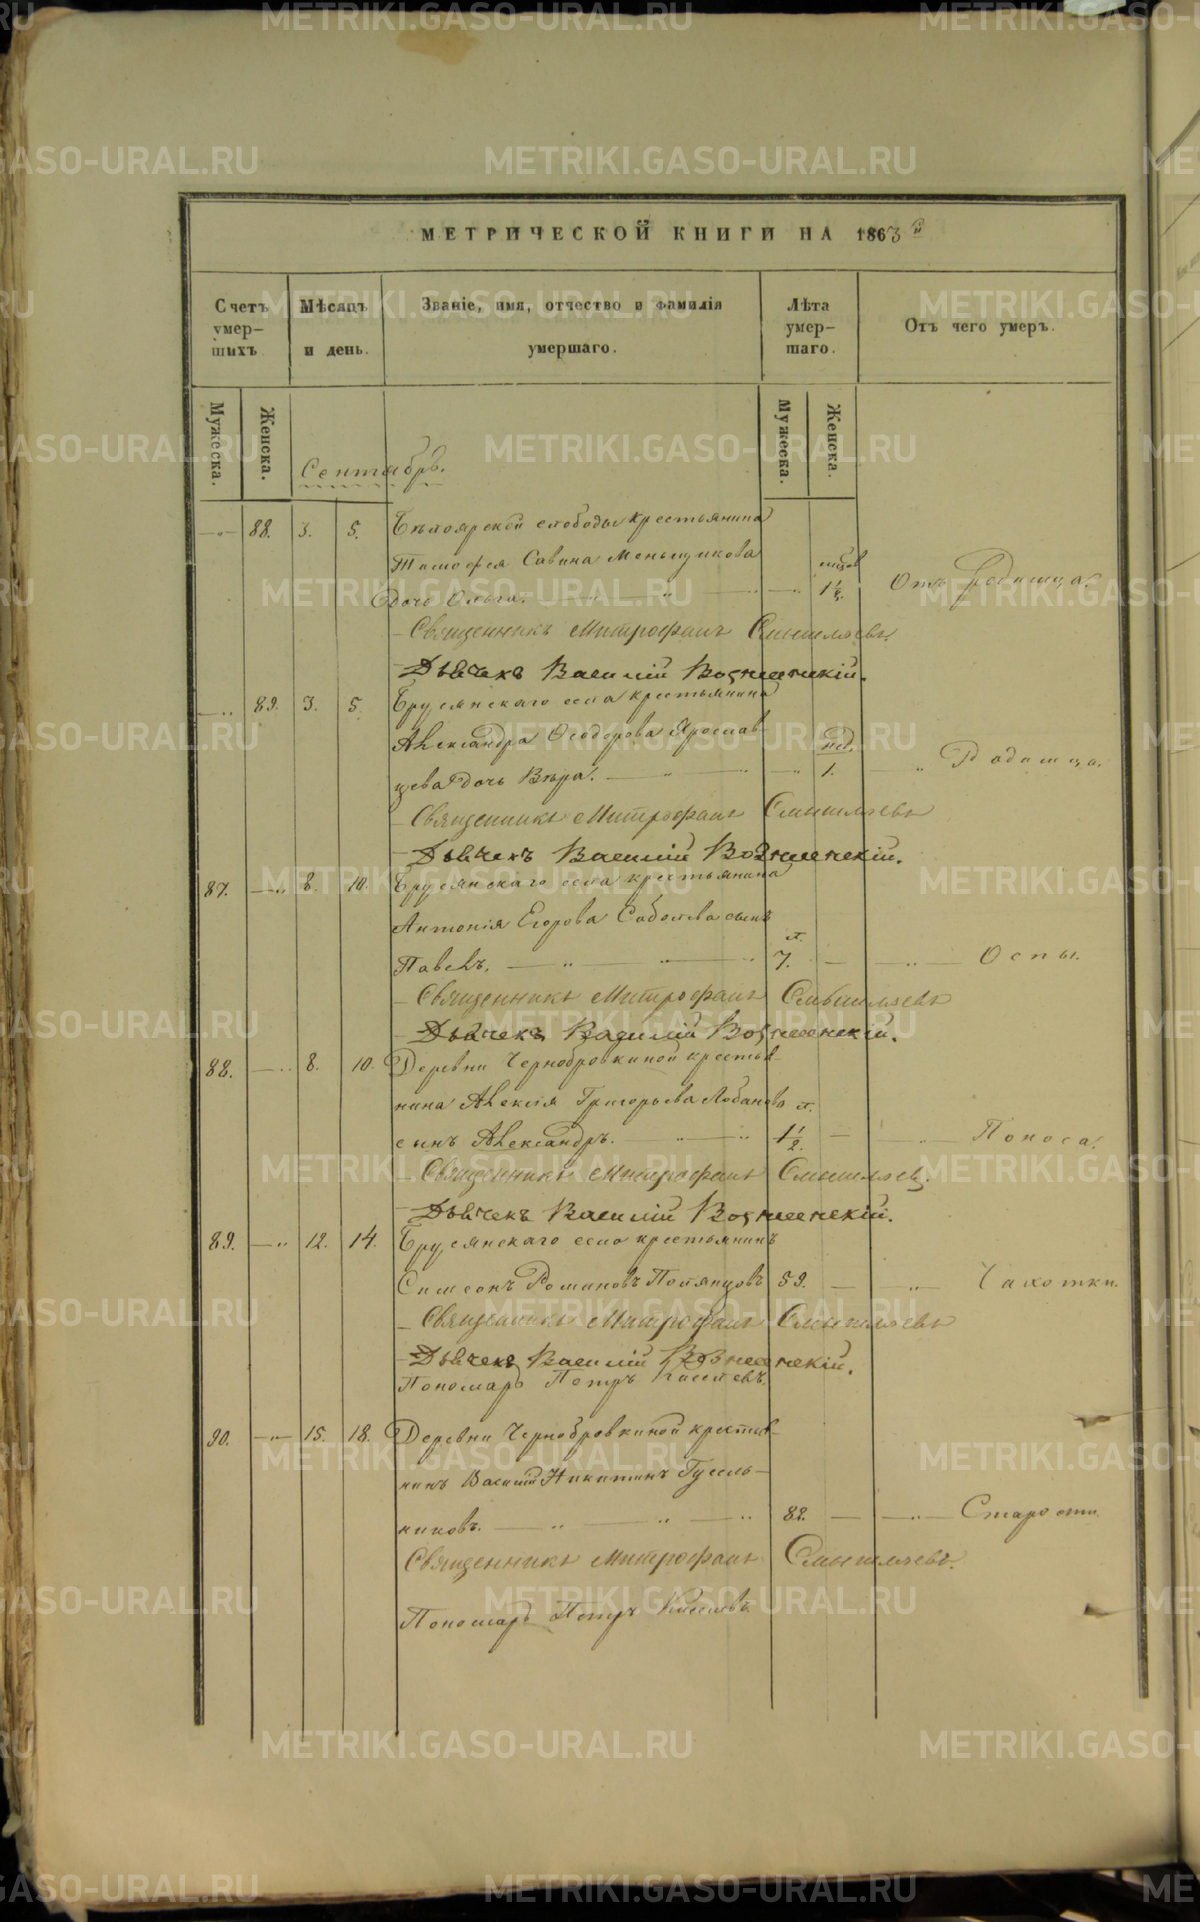 МЕТРИЧЕСКОЙ КНИГИ НА 1863й
Счетъ умер-шихъ.
Мѣсяцъ и день.
Званіе, имя, отчество и фамилія умершаго.
Лѣта умер-шаго.
Отъ чего умеръ.
Мужеска.
Женска.
Мужеска.
Женска.
Сентябрь.
88. 3. 5. Бѣлоярской слободы крестьянина
Тимофея Савина Меньщикова
дочь Ольга. 1½. Отъ родимца.
Священникъ Митрофанъ Смышляевъ
Дьячекъ Василій Вознесенскій.
89. 3. 5. Бруснянскаго села крестьянина
Александра Ѳеодорова Ярослав-
цева дочь Вѣра. нед. 1. Родимца.
Священникъ Митрофанъ Смышляевъ
Дьячекъ Василій Вознесенскій.
87. 8. 10. Бруснянскаго села крестьянина
Антонія Егорова Соболева сынъ
Павелъ. л. 7. Оспы.
Священникъ Митрофанъ Смышляевъ
Дьячекъ Василій Вознесенскій.
88. 8. 10. Деревни Чернобровкиной крестья-
нина Алексія Григорьева Лобанова
сынъ Александръ. л. 1½. Поноса.
Священникъ Митрофанъ Смышляевъ.
Дьячекъ Василій Вознесенскій.
89. 12. 14. Бруснянскаго села крестьянинъ
Симеонъ Романовъ 59. Чахотки.
Священникъ Митрофанъ Смышляевъ
Дьячекъ Василій Вознесенскій.
Пономарь Петръ Киселевъ.
90. 15. 18. Деревни Чернобровкиной крестья-
нинъ Василій Никитинъ Гусель-
никовъ. 82. Старости.
Священникъ Митрофанъ Смышляевъ.
Пономарь Петръ Киселевъ.
METRIKI.GASO-URAL.RU